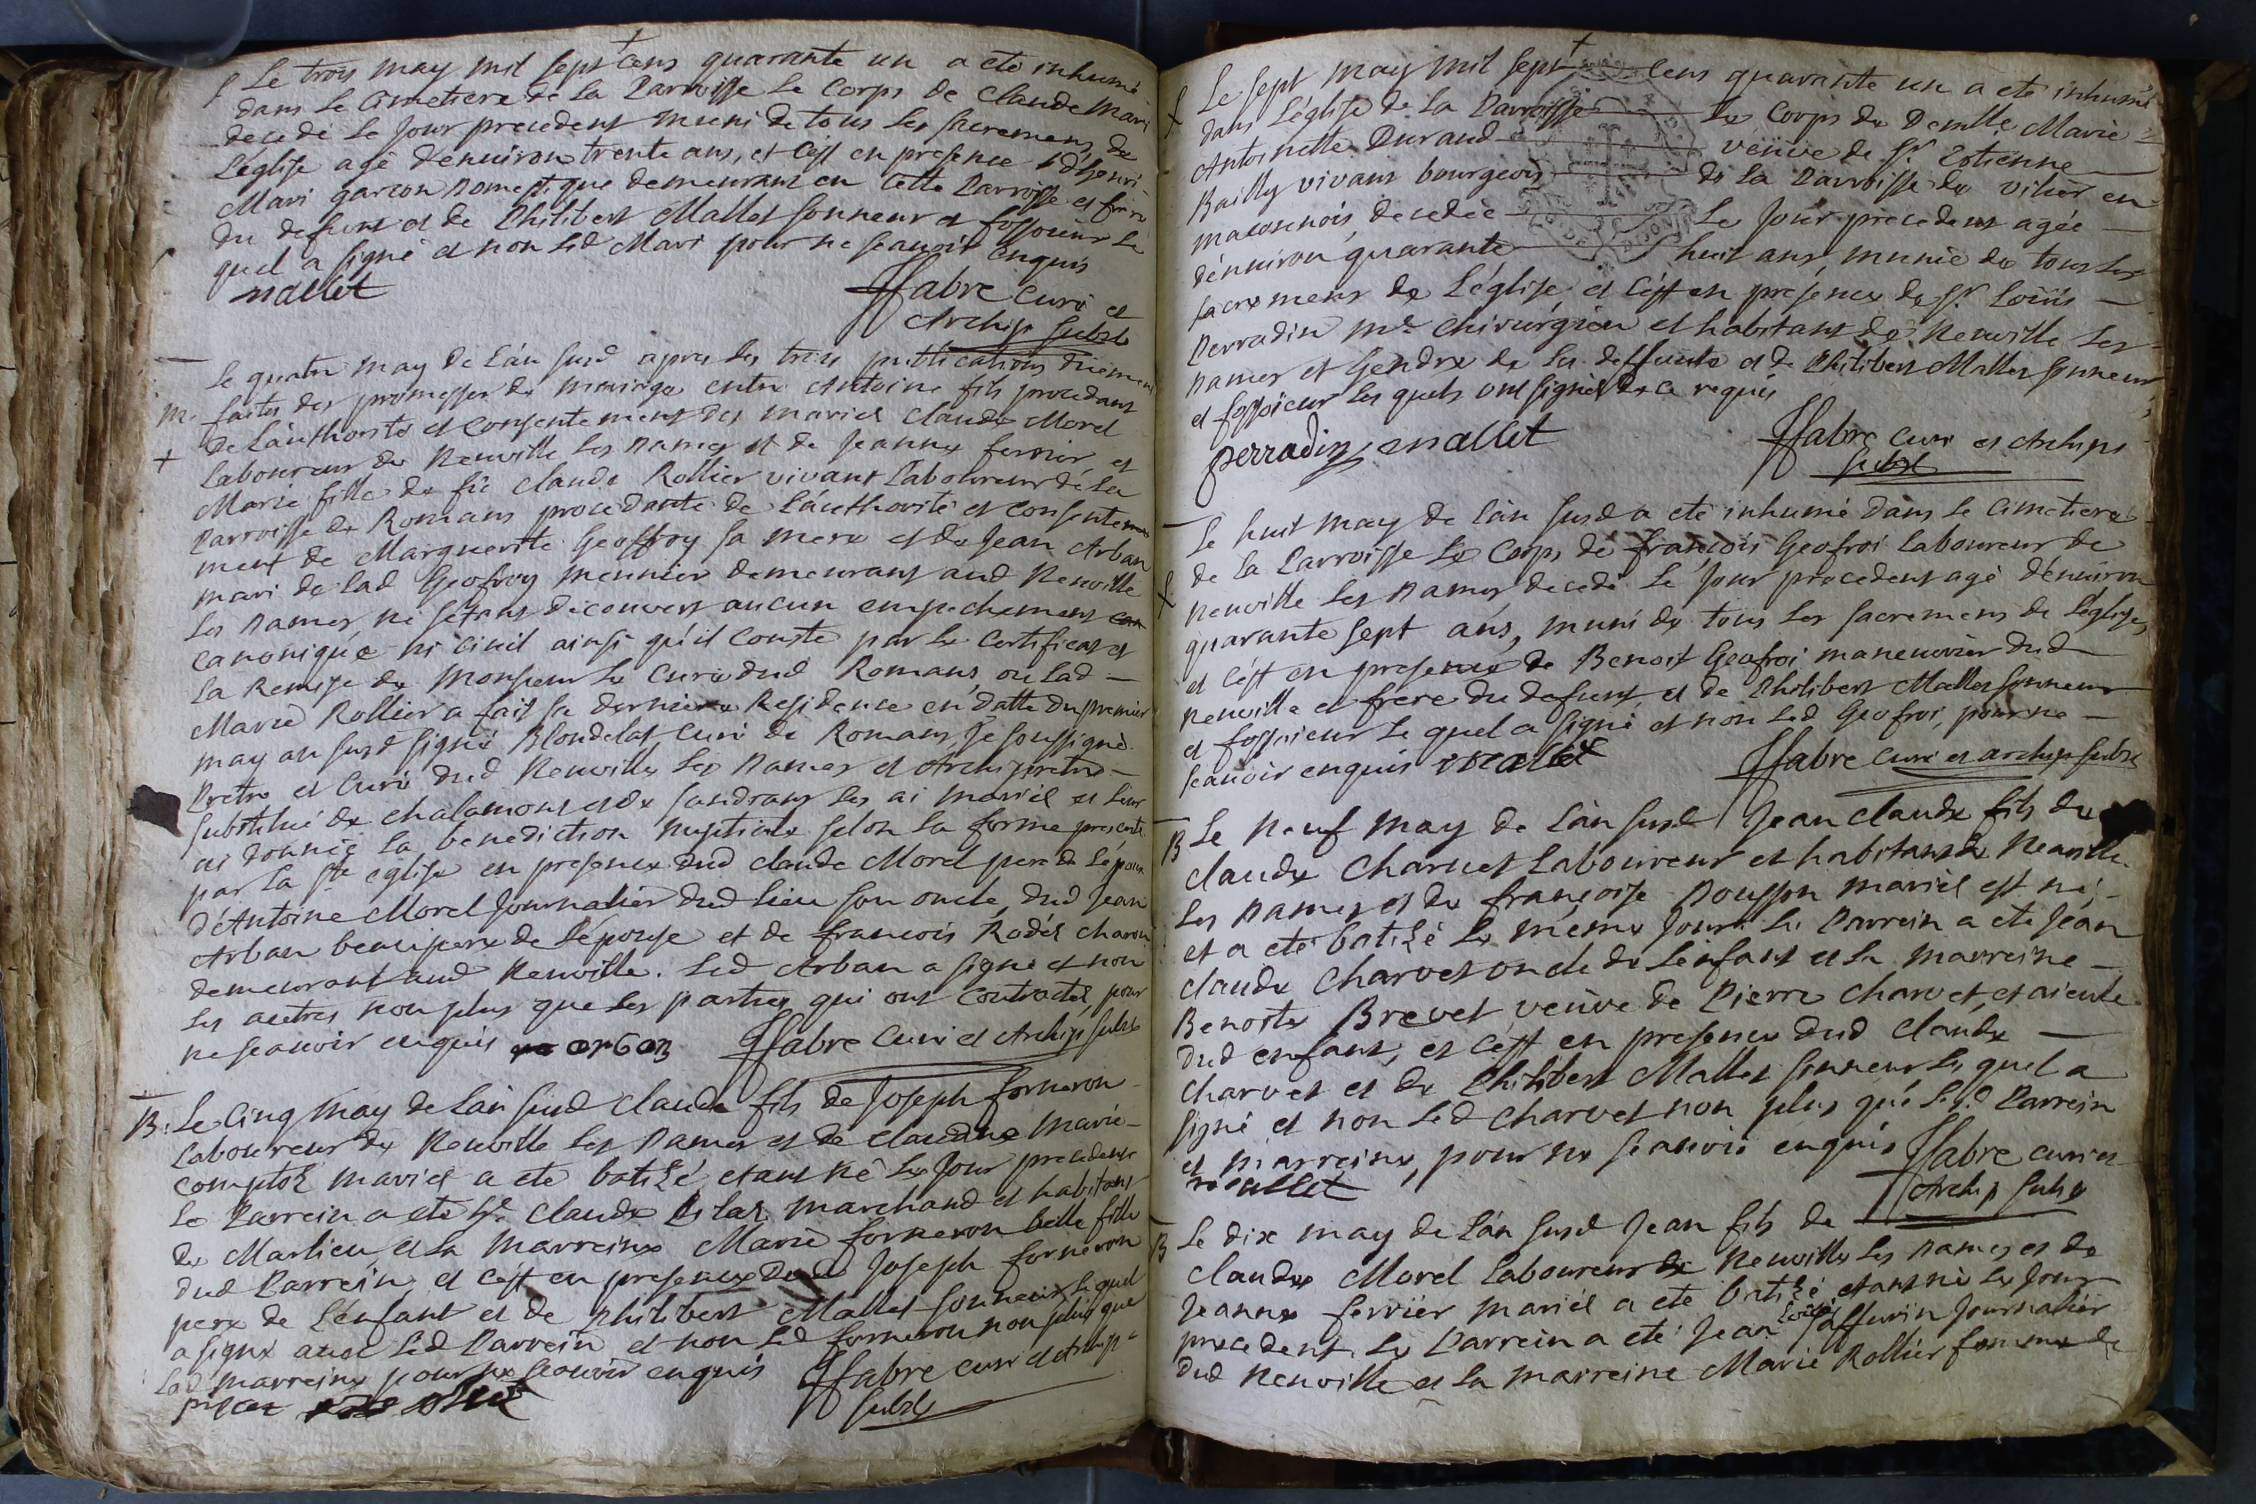 Le trois may mil sept cens quarante un a eté inhumé
dans le Cimetiere de la Parroisse le Corps de Claude Mari
decedé le jour precedent muni de tous les sacremens de
L'eglise agé d'environ trente ans, et c'est en presence d'henri
Mari garcon domestique demeurant en cette Parroisse et frere
du defunt et de Philibert Mallet sonneur et fossoieur le
quel a signé et non led Mari pour ne scavoir enquis
mallet
ffabre curé et
Archip substé
M.
Le quatre may de L'an susd apres les trois publications düement
faites des promesses de mariage entre Antoine fils procedant
de L'authorité et consentement des mariés Claude Morel
Laboureur de Neuville Les Dames et de Jeanne ferrier, et
Marie fille de fû Claude Rollier vivant Laboureur de La
Parroisse de Romans procedante de L'authorité et consente
ment de Marguerite Geoffroy sa mere et de Jean Arban
mari de lad Geofroy meunier demeurant aud Neuville
Les Dames, ne s'etant découvert aucun empechement
canonique ni civil ainsi qu'il conste par le certificat et
La Remise de Monsieur le Curé dud Romans ou lad
Marie Rollier a fait sa derniere Residence en datte du premier
may an susd signé Blondelat Curé de Romans, Je soussigné
Pretre et Curé dud Neuville Les Dames et Archipretre
substitué de Chalamont et de Sandrans les ai mariés et leur
ai donnée la benediction nuptiale selon la forme prescrite
par la Ste eglise en presence dud Claude Morel pere de L'époux
d'Antoine Morel Journalier dud Lieu son oncle, dud Jean
Arban beaupere de L'épouse et de francois Rodet charon
demeurant aud Neuville. Led Arban a signé et non
Les autres non plus que les parties qui ont contracté, pour
ne scavoir enquis arban ffabre curé et Archip substé
B. Le Cinq May de L'an susd Claude fils de Joseph forneron
Laboureur de Neuville Les Dames et de Claudine Marie
Comptoz mariés a eté batizé etant né le jour precedent
Le Parrein a eté Sr Claude marchand et habitant
de Marlieu, et la Marreine Marie forneron belle fille
dud Parrein, et c'est en presence dud Joseph forneron
pere de L'enfant et de Philibert Mallet sonneur lequel
a signé avec led Parrein et non led forneron non plus que
lad marreine pour ne scavoir enquis ffabre curé et Archip
substé
Le sept may mil sept cens quarante un a eté inhumé
dans L'église de la Parroisse le Corps de Demlle Marie
Antoinette Durand veüve de Sr Estienne
Bailly vivant bourgeois de la Parroisse de en
maconnois, decedée le jour precedent agée
d'environ quarante huit ans, munie de tous les
sacremens de L'église et c'est en présence de Sr Loüis
Perradin Me chirurgien et habitant de Neuville Les
Dames et Gendre de la deffunte et de Philibert Mallet sonneur
et fossoieur les quels ont signés de ce requis
perradin mallet ffabre curé et Archip
substé
Le huit may de L'an susd a eté inhumé dans le Cimetiere
de la Parroisse le Corps de françois Geofroi Laboureur de
Neuville Les Dames decedé le jour precedent agé d'environ
quarante sept ans, muni de tous les sacremens de L'eglise,
et c'est en presence de Benoit Geofroi maneuvrier dud
Neuville et frere du defunt, et de Philibert Mallet sonneur
et fossoieur le quel a signé et non led Geofroi, pour ne
scavoir enquis mallet ffabre curé et archip substé
B Le Neuf May de L'an susd Jean Claude fils de
Claude Charvet Laboureur et habitant de Neuville
Les Dames et de françoise Pousson mariés est né
et a eté batizé le même jour le Parrein a eté Jean
Claude Charvet oncle de L'enfant et la marreine
Benoite Brevet veüve de Pierre Charvet, et aieule
dud enfant, et c'est en presence dud Claude
Charvet et de Philibert Mallet sonneur le quel a
signé et non led Charvet non plus que led Parrein
et Marreine, pour ne scavoir enquis ffabre curé et
mallet Archip substé
B Le dix may de L'an susd Jean fils de
Claude Morel Laboureur de Neuville Les Dames et de
Jeanne ferrier mariés a eté batizé etant né le jour
precedent, le Parrein a eté Jean Journalier
dud Neuville et la marreine Marie Rollier femme de